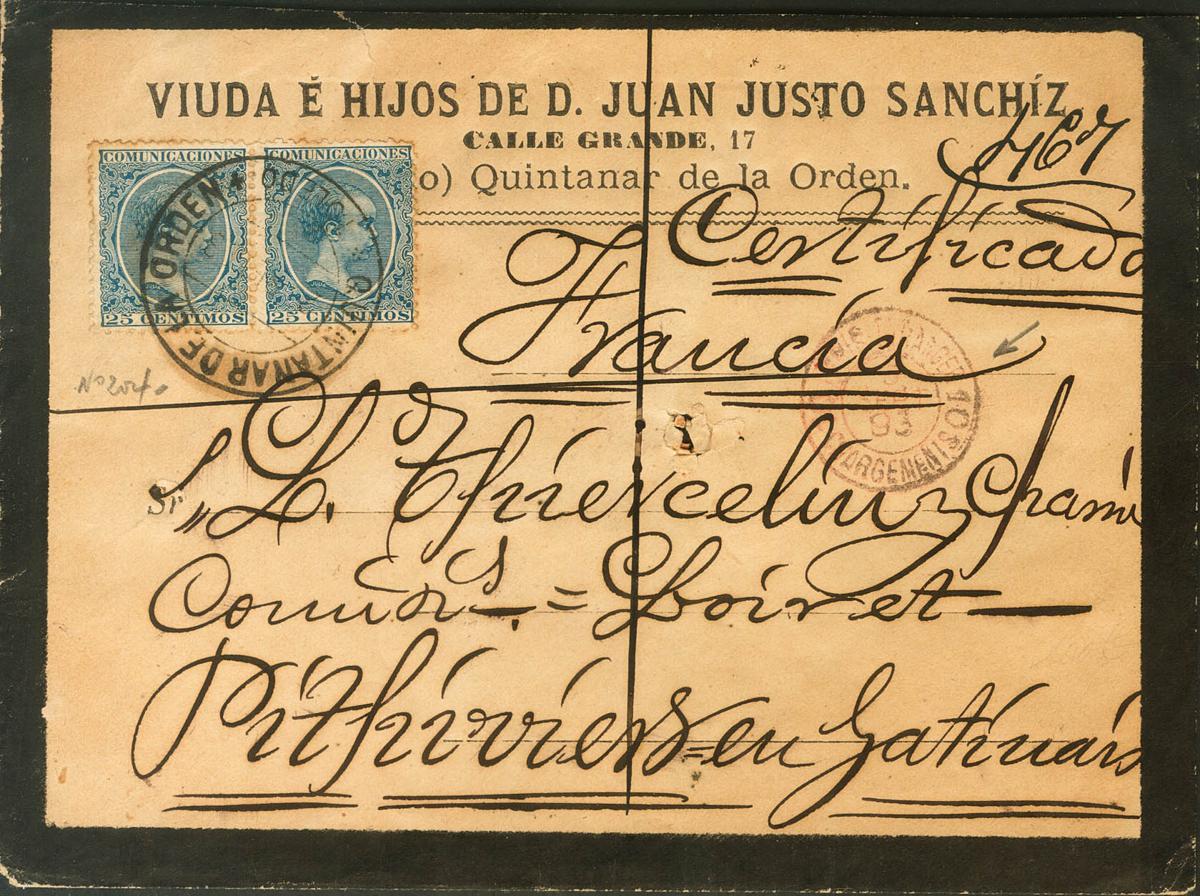 VIUDA É HIJOS DE D. JUAN JUSTO SANCHÍZ
CALLE GRANDE, 17
o) Quintanar de la Orden.
467
COMUNICACIONES COMUNICACIONES
25 CENTIMOS 25 CENTIMOS
QUINTANAR DE LA ORDEN
TOLEDO
Certificado
Francia
93
CHARGEMENTS
10
Nº 204
Sr. L. Thiercelin
= Loiret
Pithiviers = en Gatinais